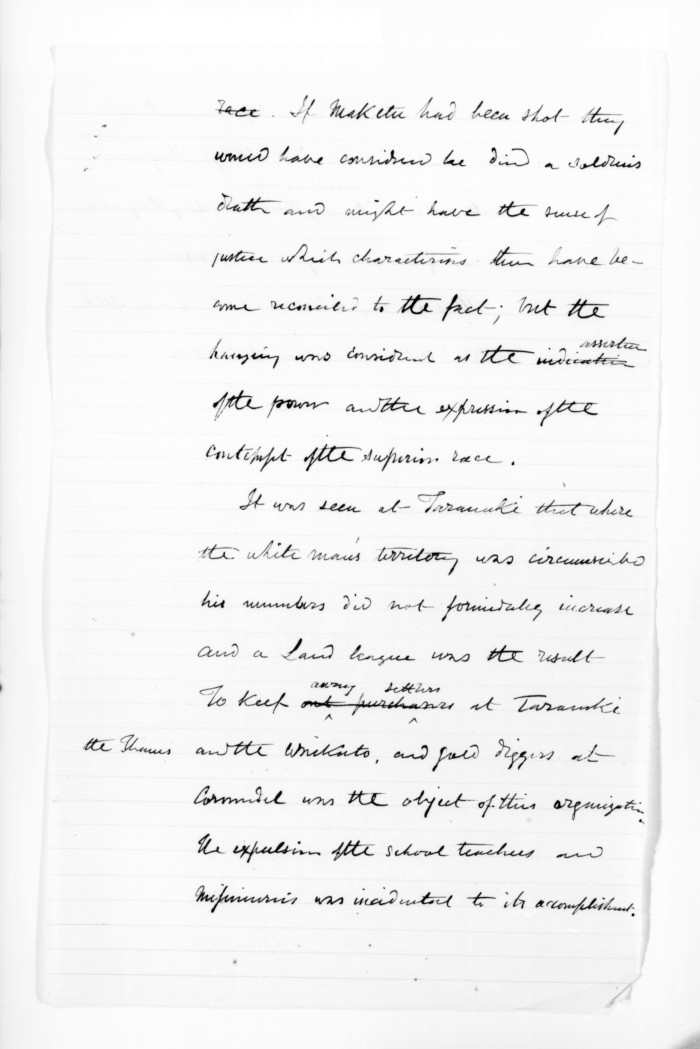 race. If Maketu had been shot they
would have considered he died a soldiers
death and might have the sense of
justice which characterises them have be-
come reconciled to the fact; but the
assertion
hanging was considered as the indication
of the power and the expression of the
contempt of the superior race.
It was seen at Taranaki that where
the white man's territory was circumscribed
his numbers did not formidably increase
and a Land league was the result
away settlers
To keep out purchasers at Taranaki
the Thames and the Waikato, and gold diggers at
Coromandel was the object of this organization.
The expulsion of the school teachers and
Missionaries was incidental to its accomplishment.